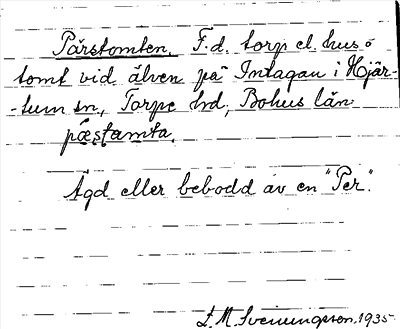 Pärstomten. F.d. torp el. hus o
tomt vid älven på Intagan i Hjär-
-tum sn, Torpe hd, Bohus län
pæstamta.
Ägd eller bebodd av en "Per".
L. M. Svenungsson, 1935